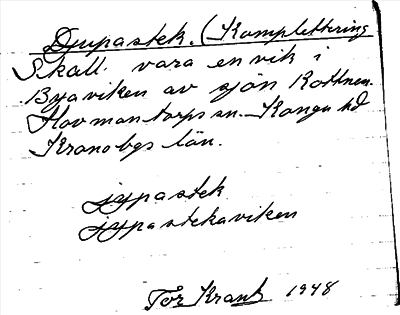 Djupastek. (Komplettering
Skall vara en vik i
Byaviken av sjön Rottnen.
Hovmantorps sn. Konga hd
Kronobgs län.
jypastek
jypastekaviken
Tor Krantz 1948